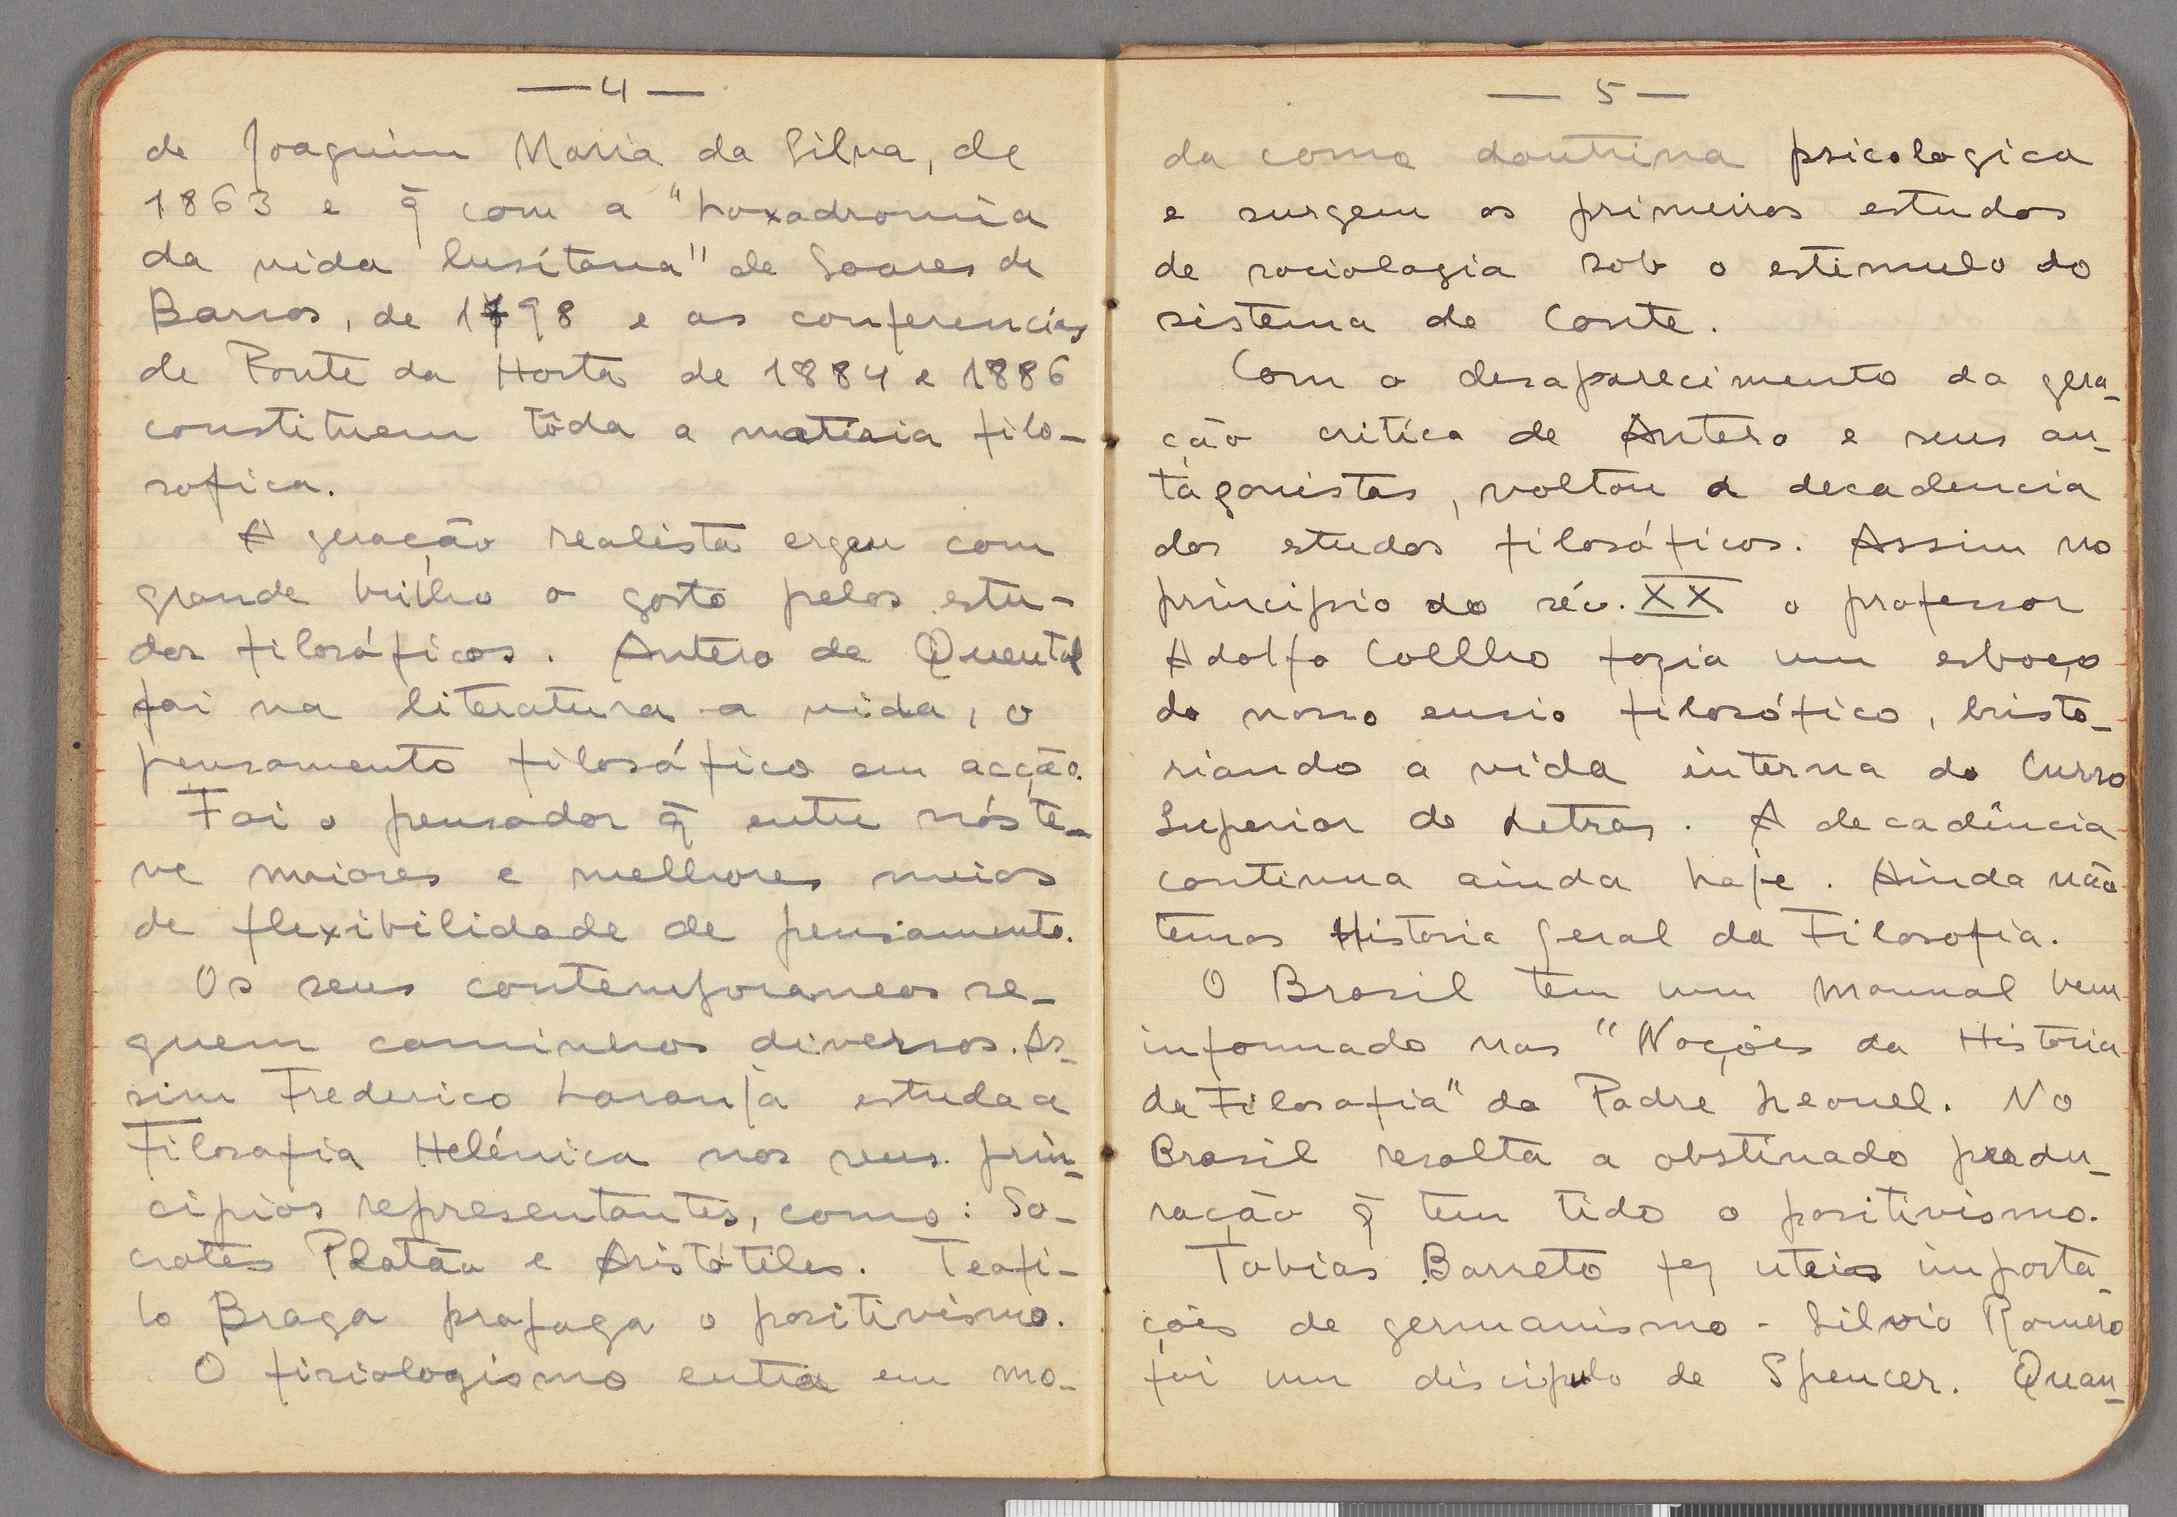 — 4 —
de Joaquim Maria da Silva, de
1863 e q̃ com a "Loxadromia
da vida lusitana" de Soares de
Barros, de 1798 e as conferencias
de Ponte da Horta de 1884 e 1886
constituem tôda a matéria filo-
sofica.
A geração realista ergeu com
grande brilho o gosto pelos estu-
dos filosóficos. Antero de Quental
foi na literatura a vida, o
pensamento filosófico em acção.
Foi o pensador q̃ entre nós te-
ve maiores e melhores meios
de flexibilidade de pensamento.
Os seus contemporaneos se-
guem caminhos diversos. As-
sim Frederico Laranja estuda a
Filosofia Helénica nos seus prin-
cipios representantes, como: So-
crates Platão e Aristótiles. Teofi-
lo Braga propaga o positivismo.
O fisiologismo entra em mo-
— 5 —
da como doutrina psicologica
e surgem os primeiros estudos
de sociologia sob o estimulo do
sistema de Conte.
Com o desaparecimento da gera-
ção critica de Antero e seus an-
tagonistas, voltou a decadencia
dos estudos filosóficos. Assim no
principio do séc. XX o professor
Adolfo Coelho fazia um esboço
do nosso ensio filosófico, histo-
riando a vida interna do Curso
Superior de Letras. A decadência
continua ainda hoje. Ainda não
temos Historia Geral da Filosofia.
O Brasil tem um Manual bem
informado nas "Noções da Historia
da Filosofia" do Padre Leonel. No
Brasil resalta a obstinado perdu-
ração q̃ tem tido o positivismo.
Tobias Barreto fez uteis importa-
çois de germanismo - Silvio Romero
foi um discipulo de Spencer. Quan-